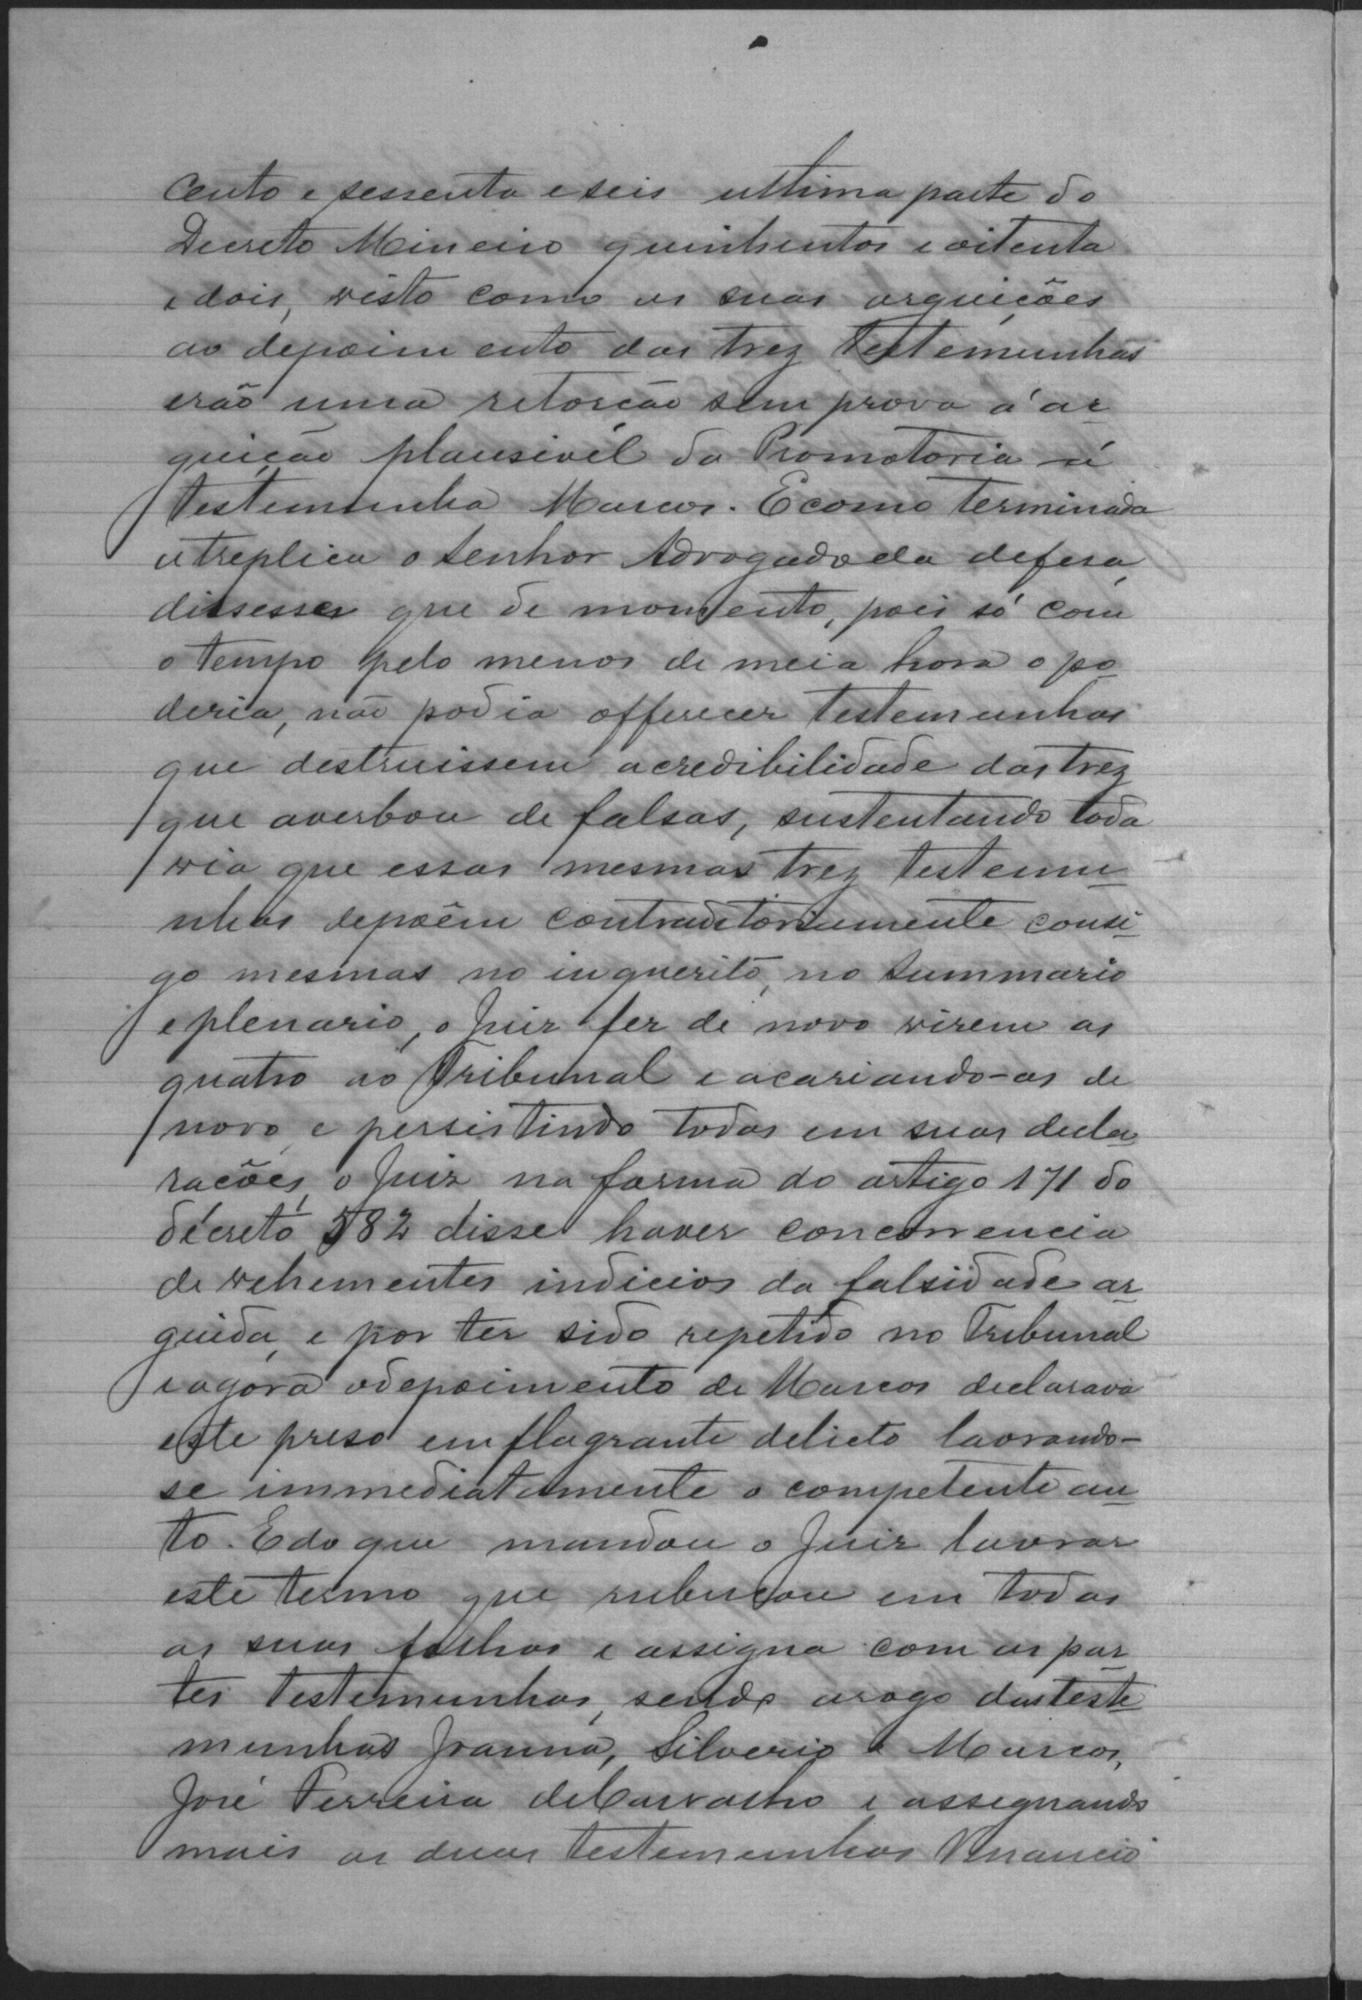 cento e sessenta e seis ultima parte do
Decreto Mineiro quinhentos e oitenta
e dois, visto como as suas arguições
ao depoimento das trez testemunhas
erão uma retorção sem prova á ar
guição plausivel da Promotoria á
testemunha Marcos. E como terminada
a treplica o Senhor Advogado da defesa
dissesse que de momento, pois só com
o tempo pelo menos de meia hora o po
deria, não podia offerecer testemunhas
que destruissem a credibilidade das trez
que averbou de falsas, sustentando toda
via que essas mesmas trez testemu
nhas depoêm contraditoriamente consi
go mesmas no inquerito, no summario
e plenario, o Juiz fez de novo virem as
quatro ao Tribunal e acariando-as de
novo e persistindo todas em suas decla
rações, o Juiz na forma do artigo 171 do
decreto 582 disse haver concorrencia
de vehementes indicios da falsidade ar
guida, e por ter sido repetido no Tribunal
e agora o depoimento de Marcos declarava
este preso em flagrante delicto lavrando-
se immediatamente o competente au
to. E do que mandou o Juiz lavrar
este termo que rubricou em todas
as suas folhas e assigna com as par
tes testemunhas, sendo a rogo das teste
munhas Joanna, Silverio e Marcos,
José Ferreira de Carvalho e assignando
mais as duas testemunhas Venancio